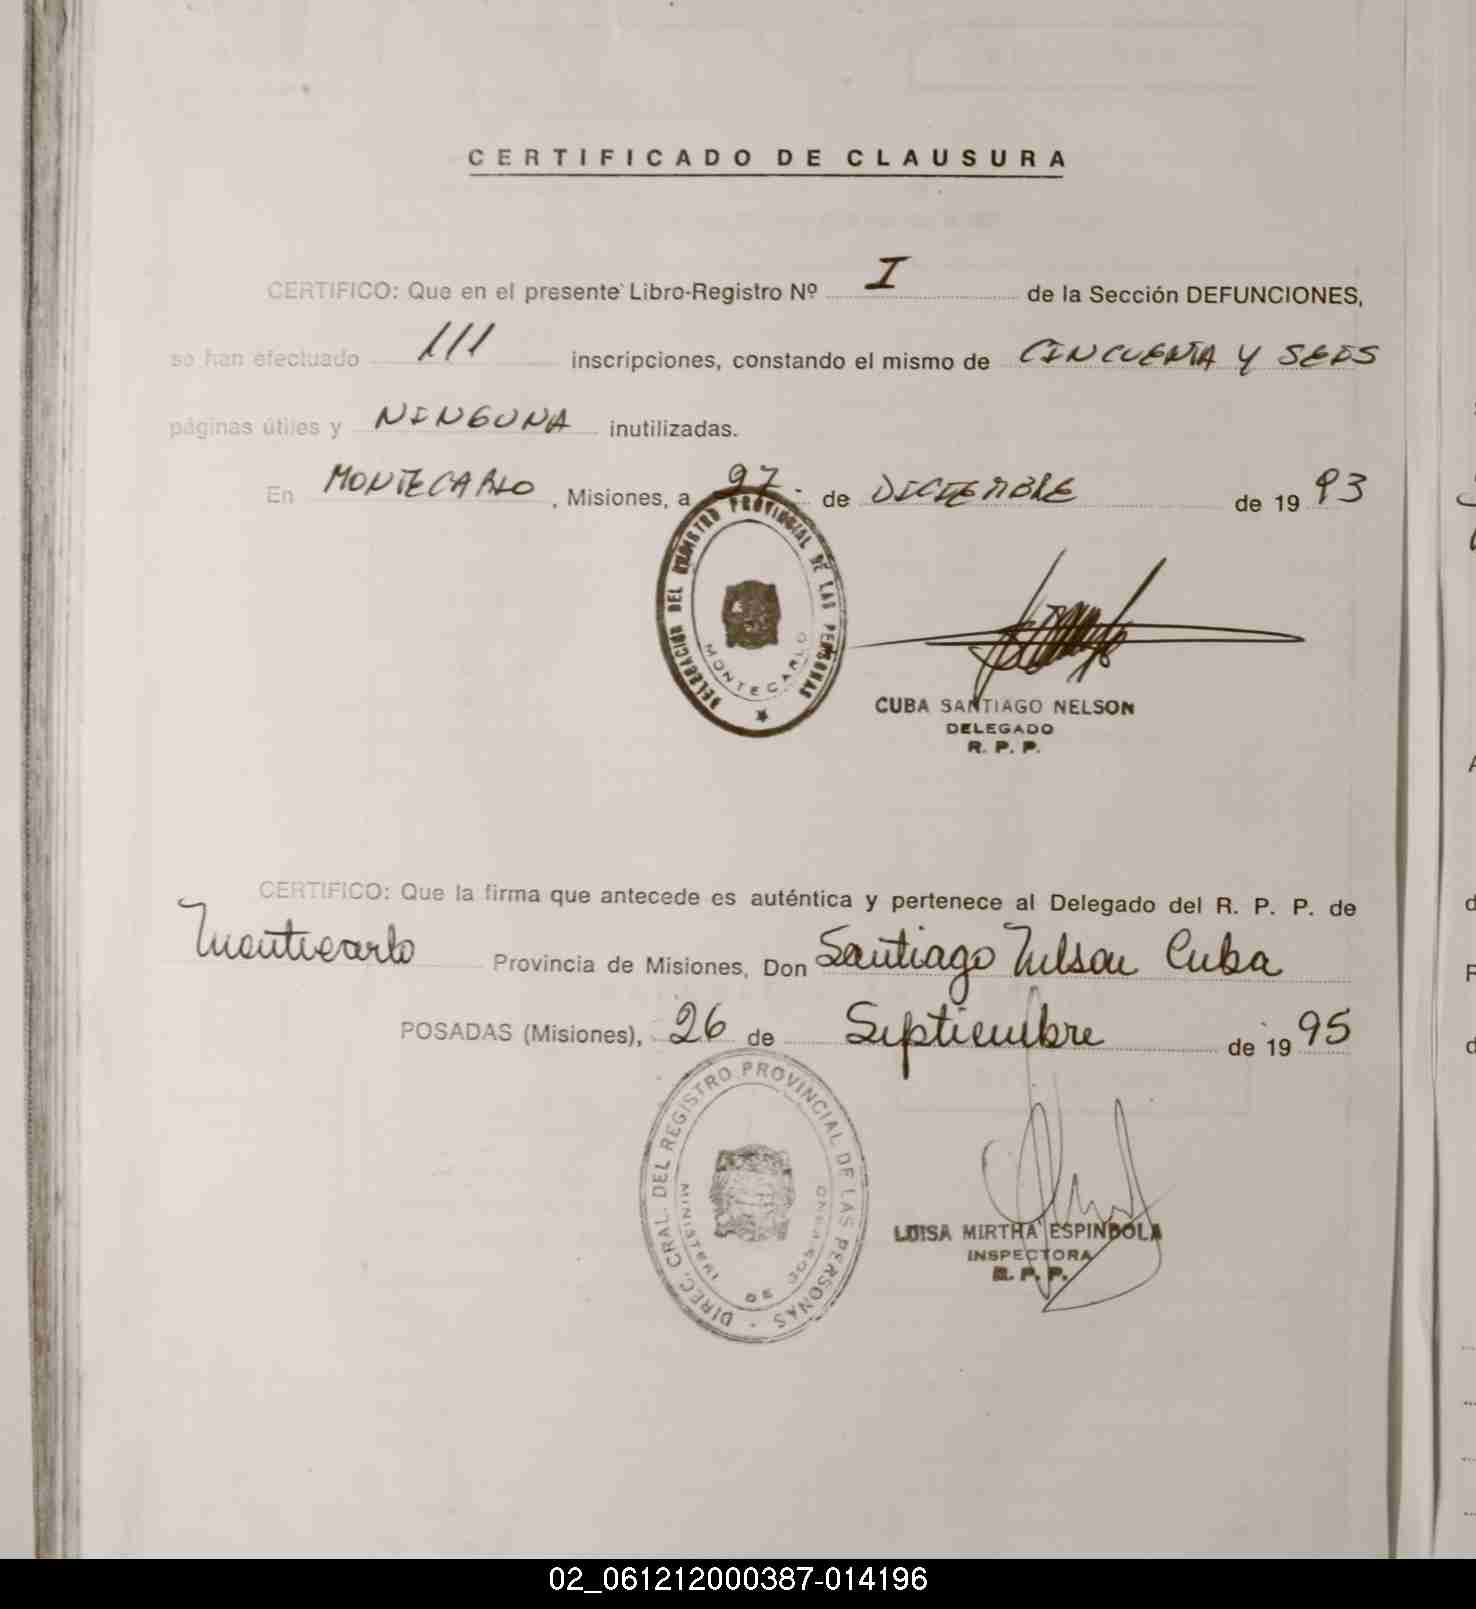 CERTIFICADO DE CLAUSURA
CERTIFICO: Que en el presente Libro-Registro Nº I de la Sección DEFUNCIONES,
se han efectuado 111 inscripciones, constando el mismo de CINCUENTA Y SEIS
páginas útiles y NINGUNA inutilizadas.
En MONTECARLO, Misiones, a 27 de DICIEMBRE de 19 93
DELEGACIÓN DEL REGISTRO PROVINCIAL DE LAS PERSONAS
MONTECARLO
CUBA SANTIAGO NELSON
DELEGADO
R. P. P.
CERTIFICO: Que la firma que antecede es auténtica y pertenece al Delegado del R. P. P. de
Montecarlo Provincia de Misiones, Don Santiago Nelson Cuba
POSADAS (Misiones), 26 de Septiembre de 19 95
DIREC. GRAL. DEL REGISTRO PROVINCIAL DE LAS PERSONAS
MINISTERI DE GOBIERNO
LUISA MIRTHA ESPINDOLA
INSPECTORA
R. P. P.
02_061212000387-014196